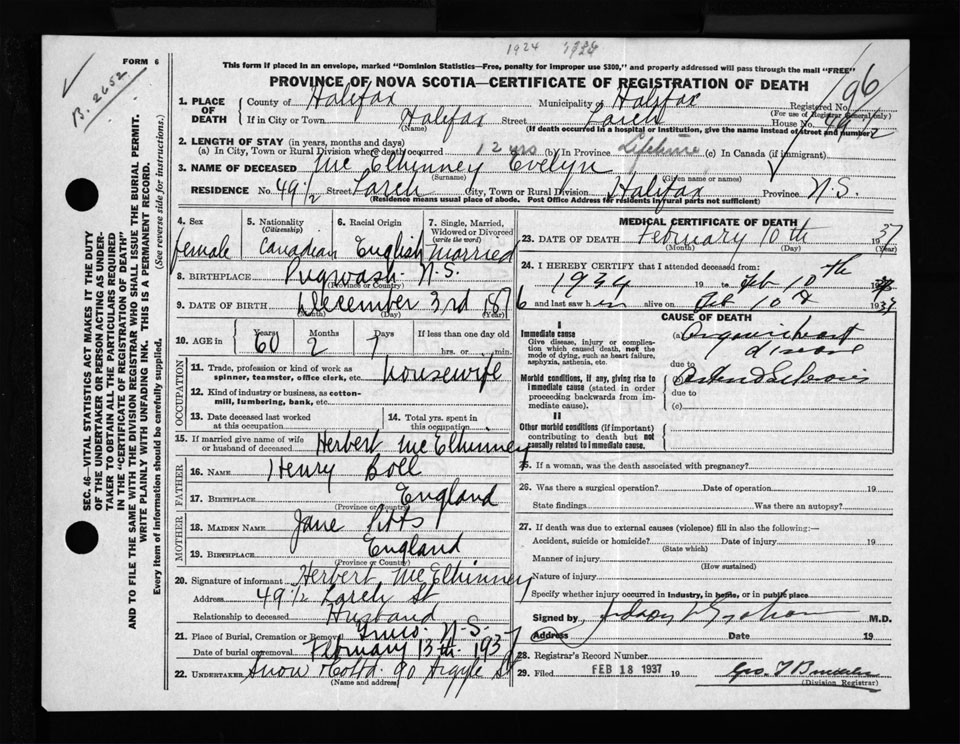 1924 1924
FORM 6
B. 2652
This form if placed in an envelope, marked "Dominion Statistics—Free, penalty for improper use $300," and properly addressed will pass through the mail "FREE"
PROVINCE OF NOVA SCOTIA—CERTIFICATE OF REGISTRATION OF DEATH
196
1. PLACE OF DEATH
County of Halifax Municipality of Halifax Registered No.
(For use of Registrar General only)
If in City or Town Halifax Street Larch House No. 49 1/2
(Name) (If death occurred in a hospital or institution, give the name instead of street and number)
2. LENGTH OF STAY (in years, months and days)
(a) In City, Town or Rural Division where death occurred 12 yrs (b) In Province Lifetime (c) In Canada (if immigrant)
3. NAME OF DECEASED Mc Elhinney Evelyn
(Surname) (Given name or names)
RESIDENCE No. 49 1/2 Street Larch City, Town or Rural Division Halifax Province N.S.
(Residence means usual place of abode. Post Office Address for residents in rural parts not sufficient)
SEC. 46—VITAL STATISTICS ACT MAKES IT THE DUTY
OF THE UNDERTAKER OR PERSON ACTING AS UNDER-
TAKER TO OBTAIN ALL THE PARTICULARS REQUIRED
IN THE "CERTIFICATE OF REGISTRATION OF DEATH"
AND TO FILE THE SAME WITH THE DIVISION REGISTRAR WHO SHALL ISSUE THE BURIAL PERMIT.
WRITE PLAINLY WITH UNFADING INK. THIS IS A PERMANENT RECORD.
Every item of information should be carefully supplied. (See reverse side for instructions.)
4. Sex female
5. Nationality (Citizenship) Canadian
6. Racial Origin English
7. Single, Married, Widowed or Divorced (write the word) Married
8. BIRTHPLACE Pugwash N.S.
9. DATE OF BIRTH December 3rd 1876
(Month) (Day) (Year)
10. AGE in Years 60 Months 2 Days 7 If less than one day old
hrs. or min.
OCCUPATION
11. Trade, profession or kind of work as
spinner, teamster, office clerk, etc. housewife
12. Kind of industry or business, as cotton-
mill, lumbering, bank, etc.
13. Date deceased last worked
at this occupation
14. Total yrs. spent in
this occupation
15. If married give name of wife
or husband of deceased Herbert McElhinney
FATHER
16. NAME Henry Boll
17. BIRTHPLACE England
(Province or Country)
MOTHER
18. MAIDEN NAME Jane
19. BIRTHPLACE England
(Province or Country)
20. Signature of informant Herbert McElhinney
Address 49 1/2 Larch St
Relationship to deceased Husband
21. Place of Burial, Cremation or Removal Truro N.S.
Date of burial or removal February 13th 1937
22. UNDERTAKER Snow & Co Ltd 90 Argyle St
(Name and address)
MEDICAL CERTIFICATE OF DEATH
23. DATE OF DEATH February 10th 1937
(Month) (Day) (Year)
24. I HEREBY CERTIFY that I attended deceased from:
1934 19 to Feb 10th 1937
and last saw her alive on Feb 10th 1937
CAUSE OF DEATH
I
Immediate cause
Give disease, injury or complica-
tion which caused death, not the
mode of dying, such as heart failure,
asphyxia, asthenia, etc.
(a) Organic heart
disease
due to
Morbid conditions, if any, giving rise to
immediate cause (stated in order
proceeding backwards from im-
mediate cause).
(b) Arteriosclerosis
due to
(c)
II
Other morbid conditions (if important)
contributing to death but not
causally related to immediate cause.
25. If a woman, was the death associated with pregnancy?
26. Was there a surgical operation? Date of operation 19
State findings Was there an autopsy?
27. If death was due to external causes (violence) fill in also the following:—
Accident, suicide or homicide? Date of injury 19
(State which)
Manner of injury
(How sustained)
Nature of injury
Specify whether injury occurred in industry, in home, or in public place
Signed by M.D.
Address Date 19
28. Registrar's Record Number
29. Filed FEB 18 1937 19
(Division Registrar)